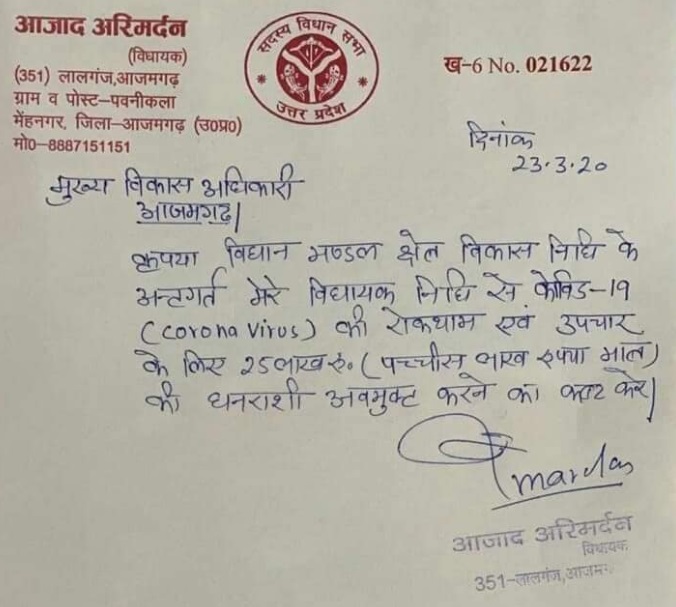 आजाद अरिमर्दन
(विधायक)
(351) लालगंज,आजमगढ़
ग्राम व पोस्ट–पवनीकला
मेंहनगर, जिला–आजमगढ़ (उ0प्र0)
मो0–8887151151
सदस्य विधान सभा
उत्तर प्रदेश
ख–6 No. 021622
दिनांक
23.3.20
मुख्य विकास अधिकारी
आजमगढ़|
कृपया विधान मण्डल क्षेत्र विकास निधि के
अन्तगर्त मेरे विधायक निधि से कोविड-19
(corona virus) की रोकथाम एवं उपचार
के लिए 25लाख रु. (पच्चीस लाख रुपया मात्र)
की धनराशी अवमुक्ट करने का कष्ट करे|
Amardan
आजाद अरिमर्दन
विधायक
351–लालगंज,आजम